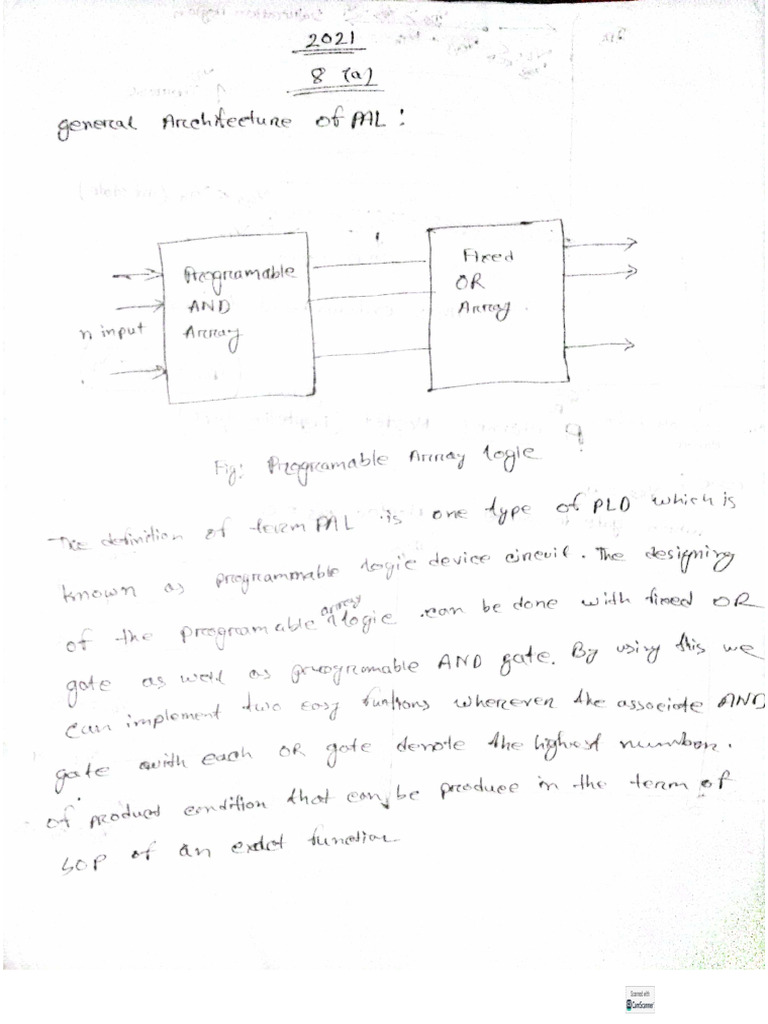 2021
8 (a)
general Architecture of PAL :
Programable
AND
Array
n input
Fixed
OR
Array
Fig: Programable Array logic
The definition of term PAL is one type of PLD which is
known as programmable logic device circuit. The designing
of the programable array logic can be done with fixed OR
gate as well as programable AND gate. By using this we
can implement two easy funtions wherever the associate AND
gate with each OR gate denote the highest number.
of product condition that can be produce in the term of
SOP of an exact function
Scanned with
CamScanner